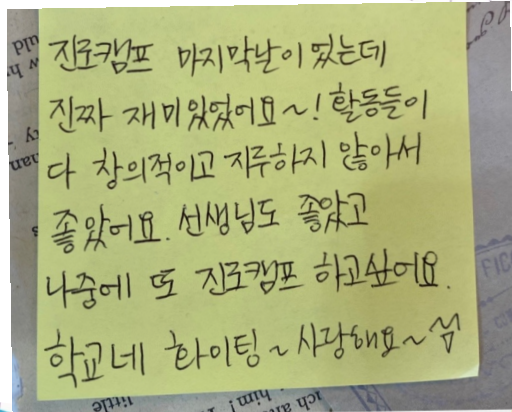 진로캠프 마지막날이 었는데
진짜 재미있었어요~! 활동들이
다 창의적이고 지루하지 않아서
좋았어요. 선생님도 좋았고
나중에 또 진로캠프 하고싶어요.
학교네 화이팅~ 사랑해요~